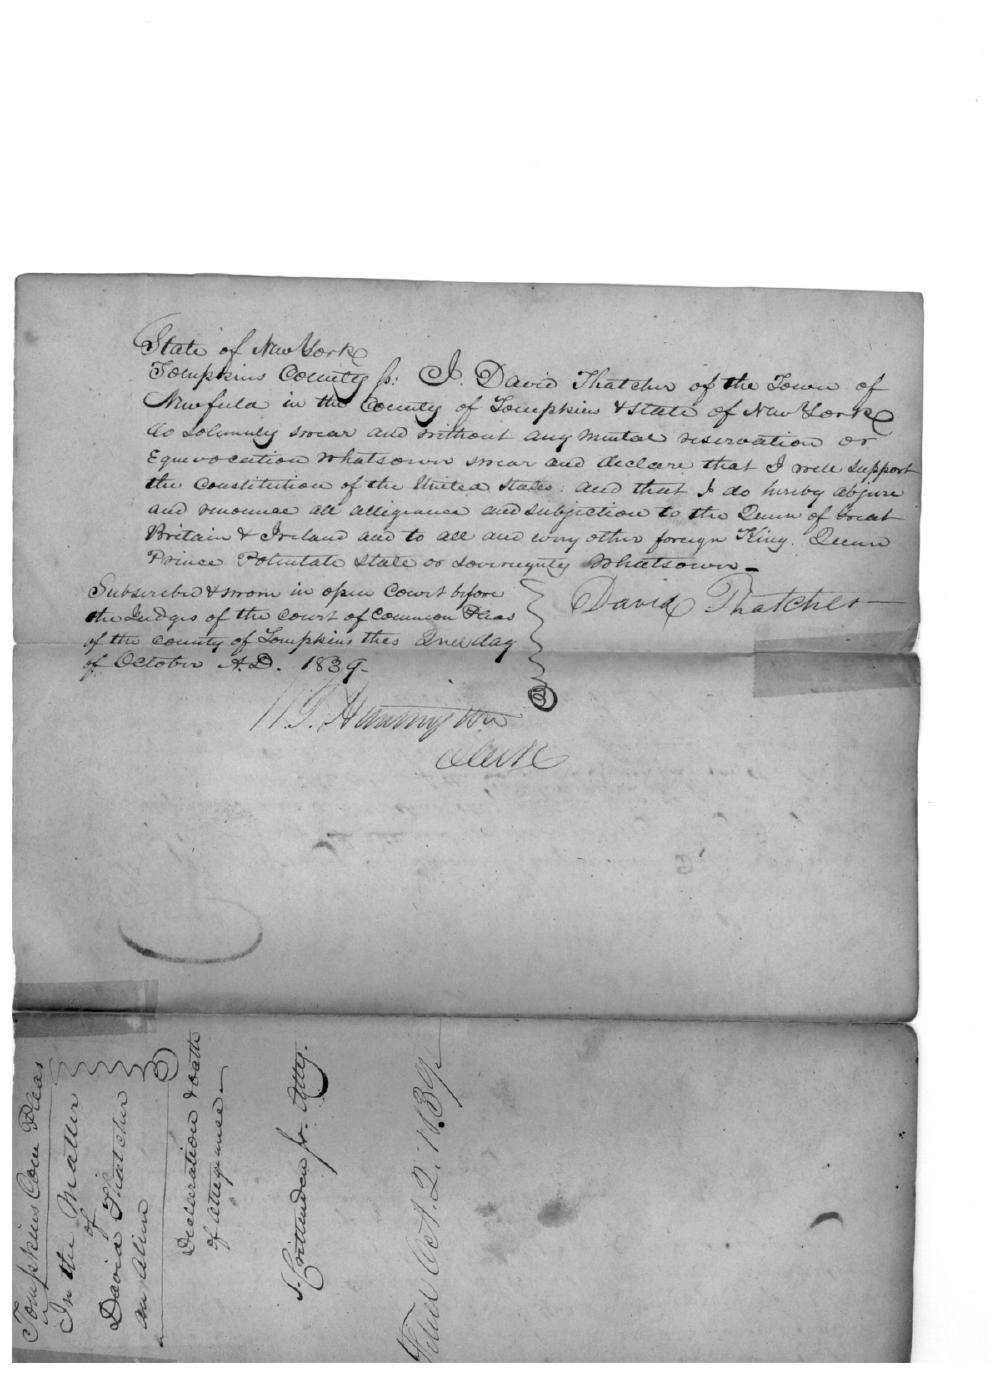 State of New York
Tompkins County ss: I. David Thatcher of the Town of
Newfield in the County of Tompkins & State of New York
do solemnly swear and without any mental reservation or
Equivocation whatsoever swear and declare that I will support
the Constitution of the United States: and that I do hereby abjure
and renounce all allegiance and subjection to the Queen of Great
Britain & Ireland and to all and every other foreign King. Queen
Prince Potentate State or Sovereignty Whatsoever—
Subscribed & sworn in open Court before
the Judges of the Court of Common Pleas
of the County of Tompkins this 2nd day
of October A.D. 1839-
David Thatcher
Clerk
Tompkins Com Pleas
In the Matter
of
David Thatcher
an Alien
Declaration & oath
of allegiance—
S. Crittenden Jr. Atty.
Filed Oct. 2. 1839